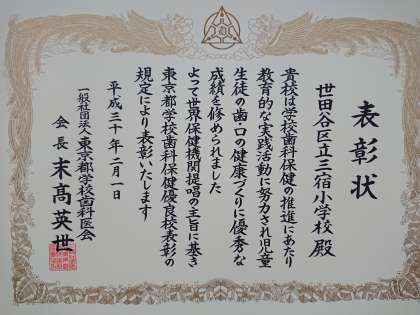 表彰状
世田谷区立三宿小学校 殿
貴校は学校歯科保健の推進にあたり
教育的な実践活動に努力され児童
生徒の歯・口の健康づくりに優秀な
成績を修められました
よって世界保健機関提唱の主旨に基き
東京都学校歯科保健優良校表彰の
規定により表彰いたします
平成三十年二月一日
一般社団法人東京都学校歯科医会
会長 末髙英世